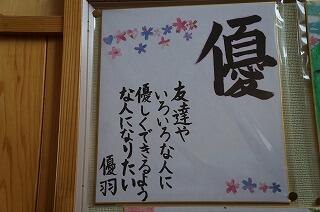 優
友達や
いろいろな人に
優しくできるよう
な人になりたい
優羽